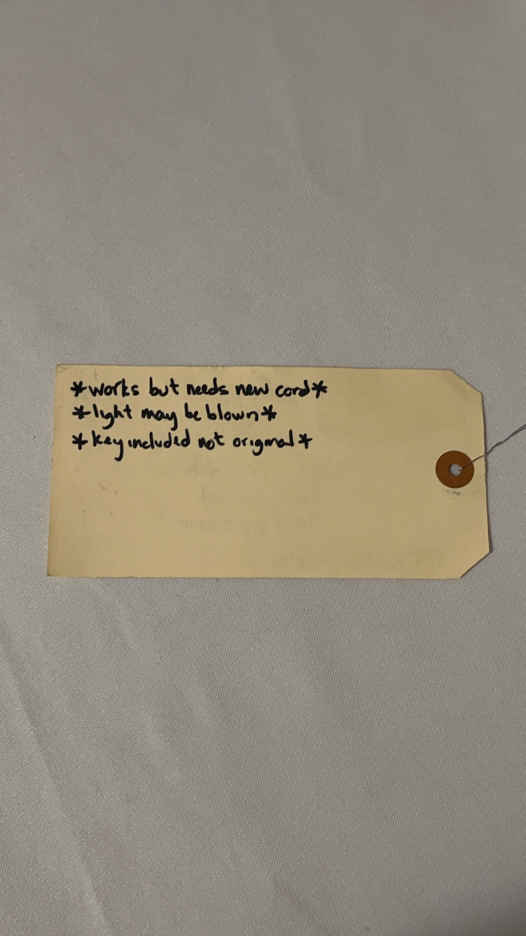 *works but needs new cord*
*light may be blown*
*key included not original*